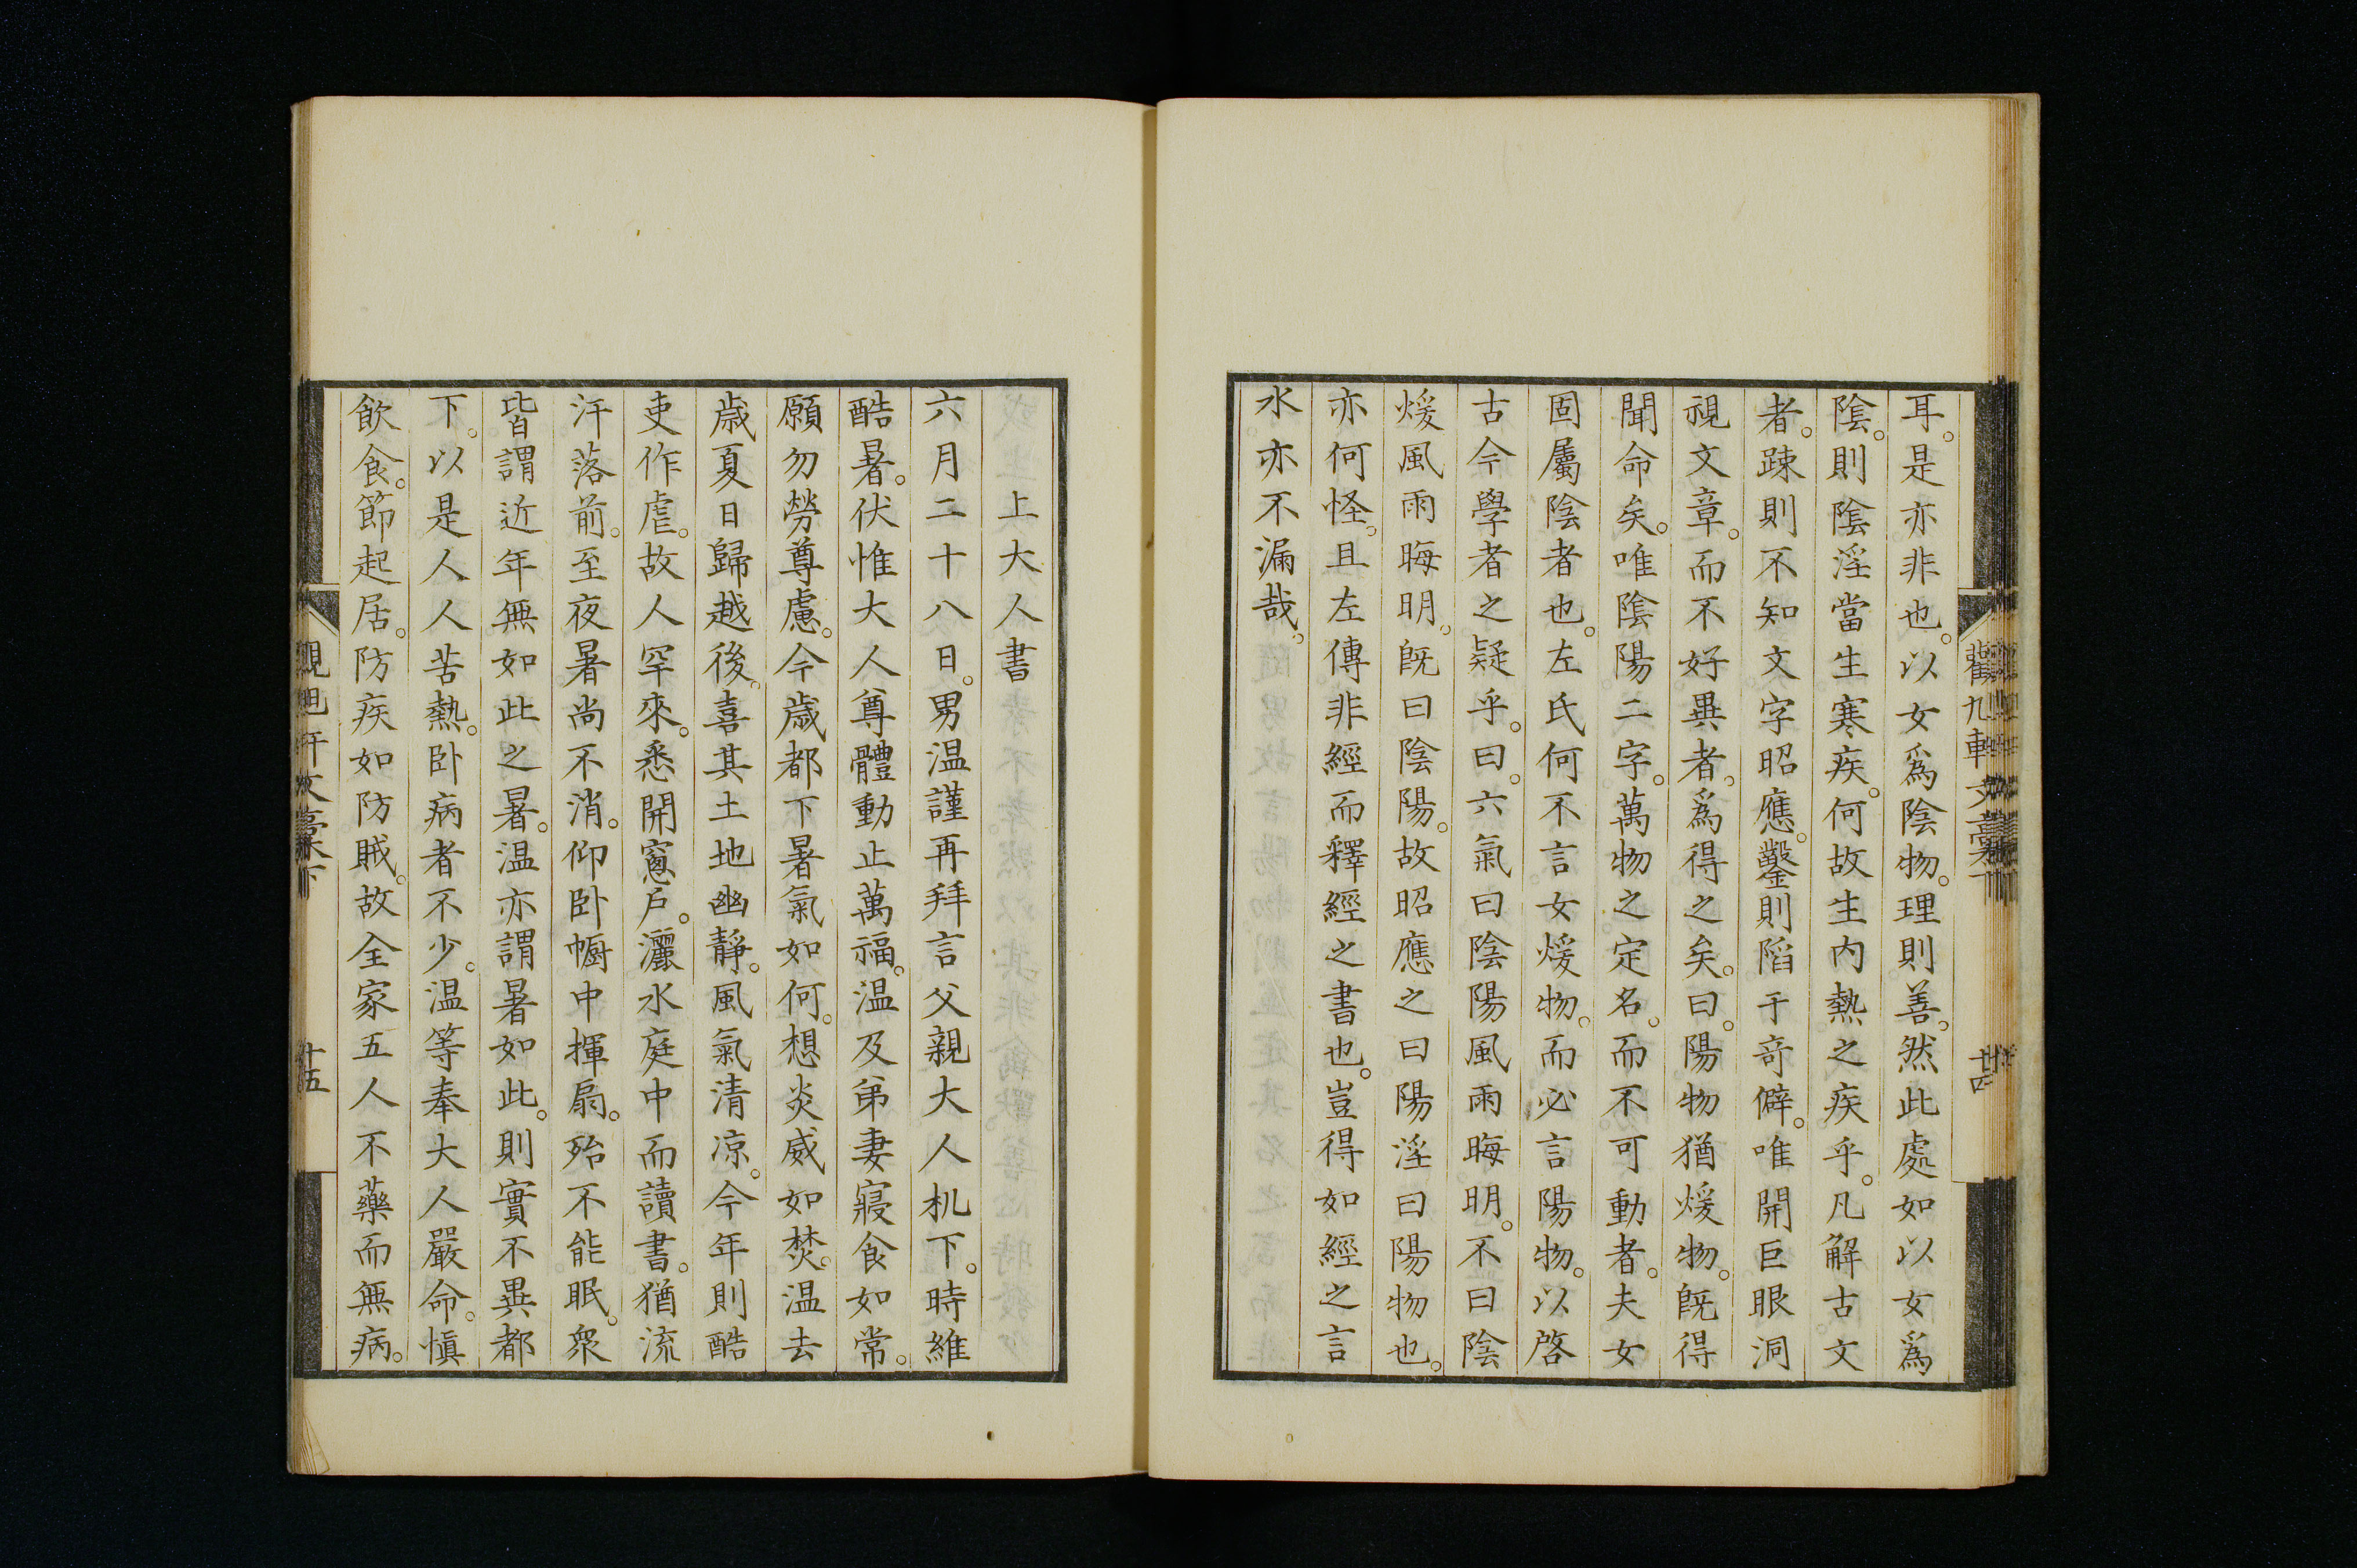 耳。是亦非也。以女爲陰物。理則善。然此處如以女爲
陰。則陰淫當生寒疾。何故生内熱之疾乎。凡解古文
者。踈則不知文字昭應。鑿則陷于竒僻。唯開巨眼洞
視文章。而不好異者。爲得之矣。曰。陽物猶煖物。既得
聞命矣。唯陰陽二字。萬物之定名。而不可動者。夫女
固屬陰者也。左氏何不言女煖物。而必言陽物。以啓
古今學者之疑乎。曰。六氣曰陰陽風雨晦明。不曰陰
煖風雨晦明。既曰陰陽。故昭應之曰陽淫曰陽物也。
亦何怪。且左傳非經而釋經之書也。豈得如經之言
水亦不漏哉。
上大人書
六月二十八日。男温謹再拜言父親大人机下。時維
酷暑。伏惟大人尊體動止萬福。温及弟妻寢食如常。
願勿勞尊慮。今歳都下暑氣如何。想炎威如焚。温去
歳夏日歸越後。喜其土地幽靜。風氣清凉。今年則酷
吏作虐。故人罕來。悉開窻戸。灑水庭中而讀書。猶流
汗落前。至夜暑尚不消。仰卧幮中揮扇。殆不能眠。衆
皆謂近年無如此之暑。温亦謂暑如此。則實不異都
下。以是人人苦熱。卧病者不少。温等奉大人嚴命。愼
飲食。節起居。防疾如防賊。故全家五人不藥而無病。